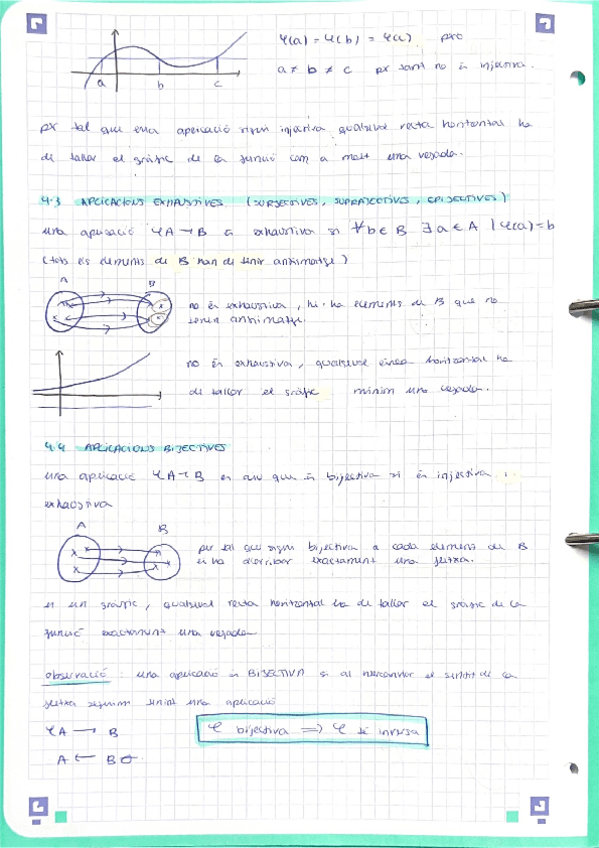 φ(a) = φ(b) = φ(c) però
a ≠ b ≠ c per tant no és injectiva.
a b c
per tal que una aplicació sigui injectiva qualsevol recta horitzontal ha
de tallar el gràfic de la funció com a molt una vegada.
4.3 APLICACIONS EXHAUSTIVES (SURJECTIVES, SUPRAJECTIVES, EPIJECTIVES)
una aplicació φA→B és exhaustiva si ∀b∈B ∃a∈A | φ(a)=b
(tots els elements de B han de tenir antiimatge)
A B
no és exhaustiva, hi ha elements de B que no
tenen antiimatge.
no és exhaustiva, qualsevol línea horitzontal ha
de tallar el gràfic mínim una vegada.
4.4 APLICACIONS BIJECTIVES
una aplicació φA→B es diu que és bijectiva si és injectiva i
exhaustiva
A B
per tal que sigui bijectiva a cada element de B
li ha d'arribar exactament una fletxa.
en un gràfic, qualsevol recta horitzontal ha de tallar el gràfic de la
funció exactament una vegada
observació: una aplicació és BIJECTIVA si al intercanviar el sentit de la
fletxa seguim tenint una aplicació
φA → B
φ bijectiva ⟹ φ té inversa
A ← B